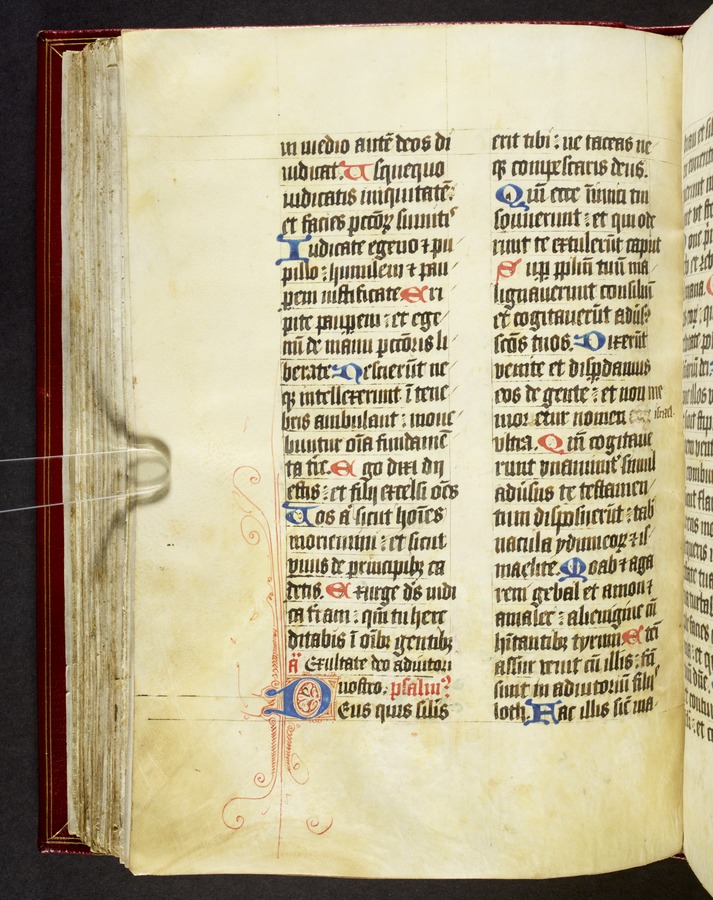 in medio autē deos di
iudicat. Usquequo
iudicatis iniquitatē:
et facies pctōꝝ sumitis
Iudicate egeno ⁊ pu
pillo: humilem ⁊ pau
perem iustificate Eri
pite pauperem: et ege
nū de manu pctōris li
berate Nescierūt ne
qꝫ intellexerunt ī tene
bris ambulant: moue
buntur oīa fundamē
ta tre. Ego dixi dij
estis: et filij excelsi oēs
Uos aū sicut hoīes
moriemini: et sicut
vnus de principibꝫ ca
detis. Exurge ds iudi
ca tram: qm̄ tu here
ditabis ī oībꝫ gentibꝫ
a Exultate deo adiutori
nostro. psalmꝰ
Deus quis silis
erit tibi: ne taceas ne
qꝫ compescaris deus.
Qm̄ ecce inimici tui
sonuerunt: et qui ode
runt te extulerūt caput
Sup pplm̄ tuū ma
lignauerunt consiliū
et cogitauerūt adūsꝰ
scōs tuos. Dixerūt
venite et disperdamus
eos de gente: et non me
moretur nomen israel
vltra. Qm̄ cogitaue
runt vnanimit simul
adūsus te testamen
tum disposuerūt: tab
nacula ydumeoꝝ ⁊ is
maelite. Moab ⁊ aga
reni gebal et amon ⁊
amalec: alienigine cū
hītantibꝫ tyrum Eteī
assur venit cū illis: fcī
sunt in adiutoriū filijs
loth. Fac illis sic̄ ma